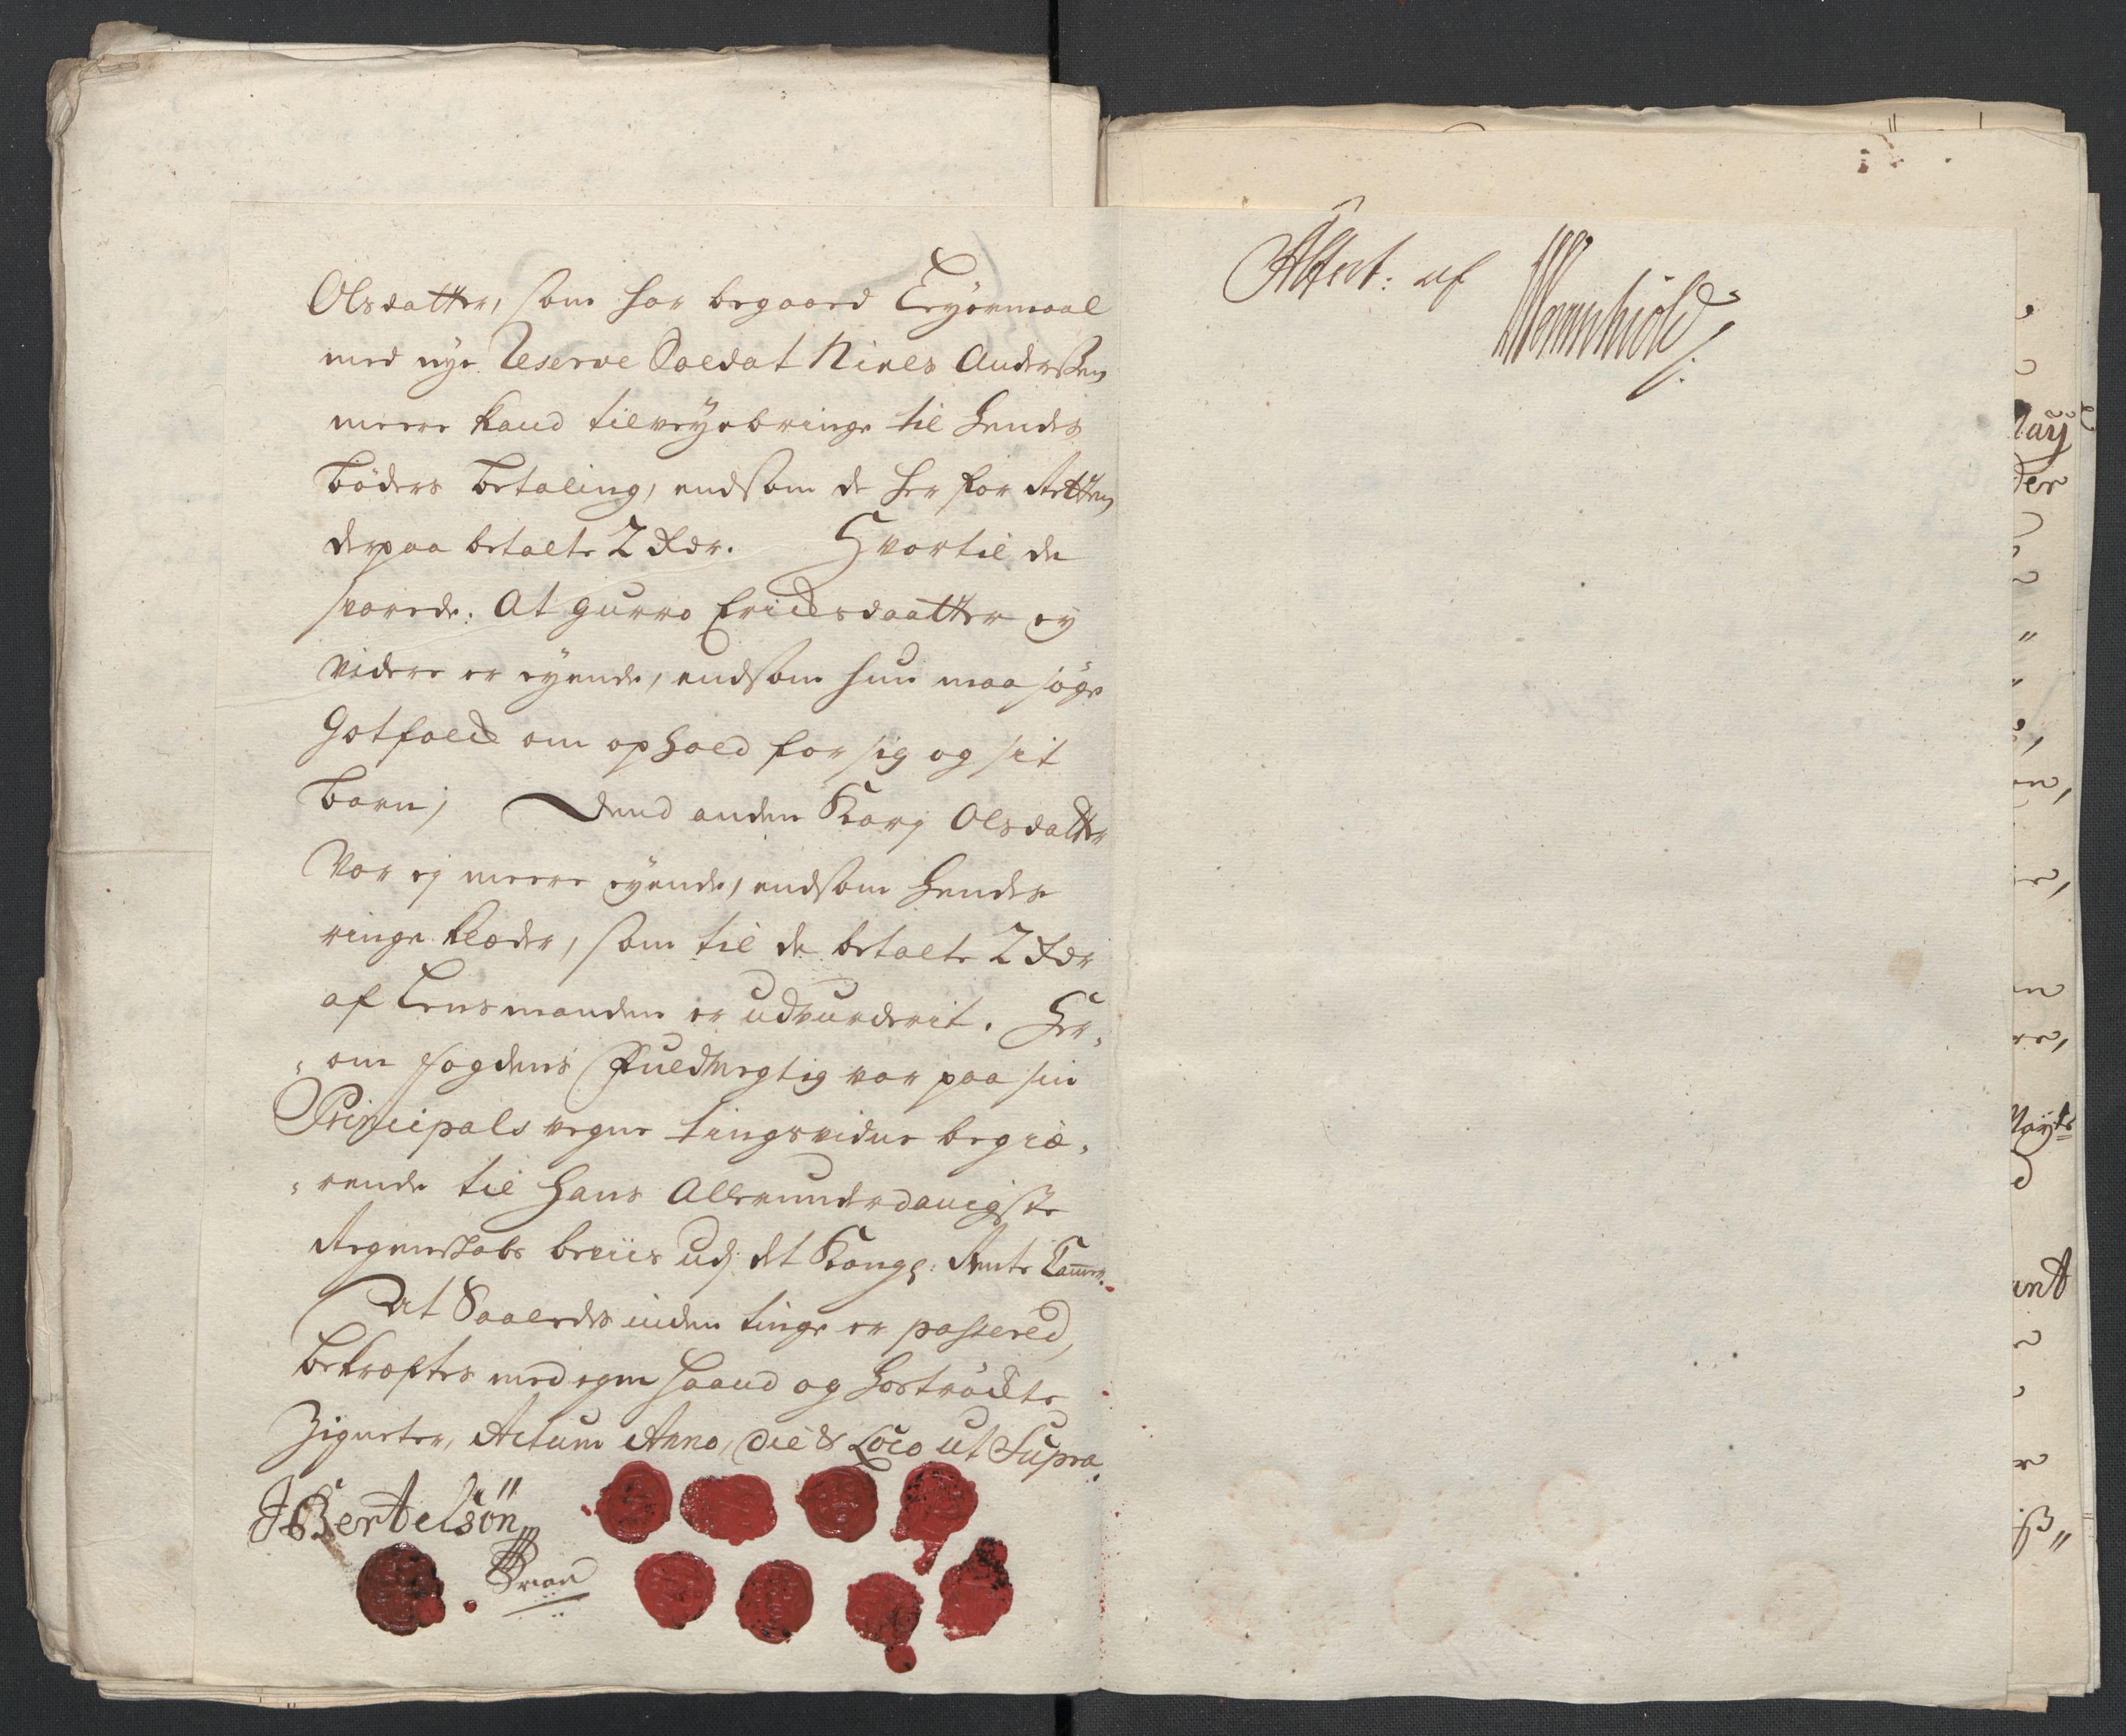 Olsdatter, som har begaaed Leyermaal
med nye Reserve Soldat Niels Anderssen
meere kand tilveyebringe til hendes
bøders betaling, endsom de her for Retten
derpaa betalte 2 Rdr. Hvortil de
svarede: At Gurro Erichsdaatter ey
videre er eyende, endsom hun maa søge
Gotfolck om ophold for sig og sit
barn; Dend anden Karj Olsdatter
var ej meere eyende, endsom hendes
ringe klæder, som til de betalte 2 Rdr
af Lensmanden er udvurderit. Her-
om fogdens Fuldmegtig var paa sin
Principals vegne tingsvidne begiæ-
rende til hans Allerunderdanigste
Regenskabs beviis udj det Kongl: Rente Camer.
At Saaledes inden tinge er passered,
bekræftes med egen haand og hostrøchte
Zigneter, Actum Anno, die & Loco ut Supra.
JBertelsøn
Attest: af